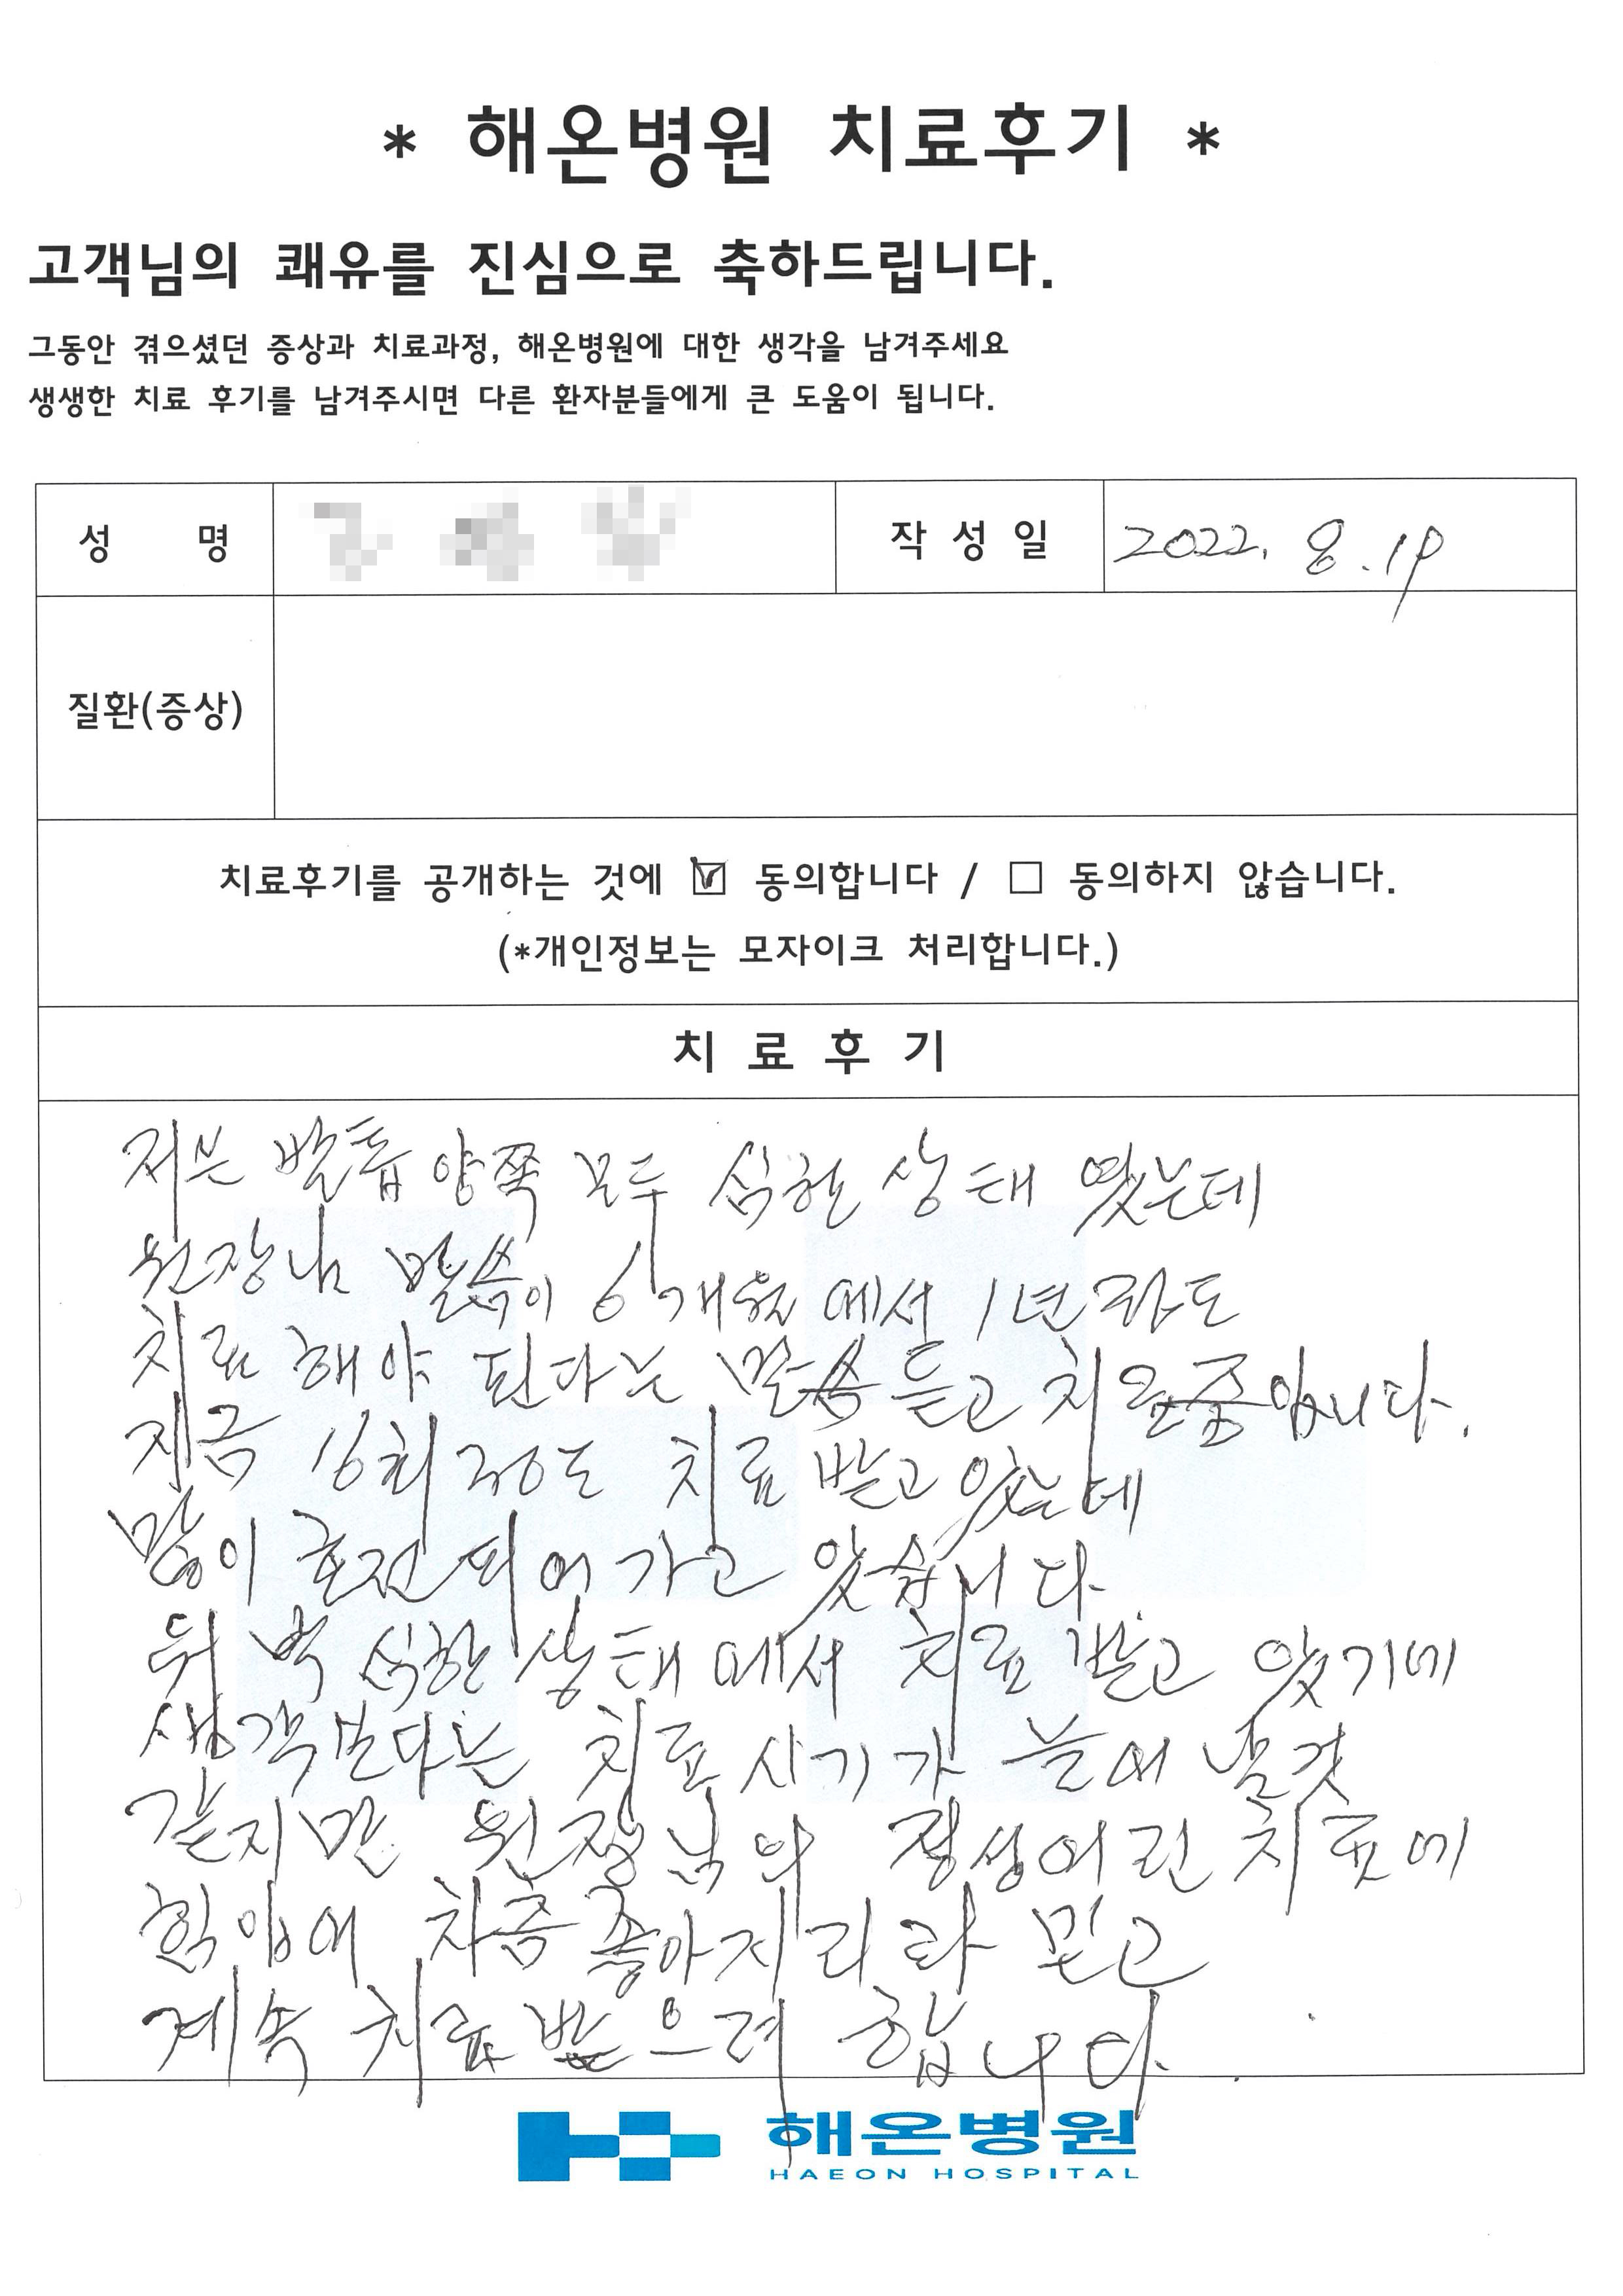 * 해온병원 치료후기 *
고객님의 쾌유를 진심으로 축하드립니다.
그동안 겪으셨던 증상과 치료과정, 해온병원에 대한 생각을 남겨주세요
생생한 치료 후기를 남겨주시면 다른 환자분들에게 큰 도움이 됩니다.
성 명
작 성 일 2022. 8. 19
질환(증상)
치료후기를 공개하는 것에 ☑ 동의합니다 / ☐ 동의하지 않습니다.
(*개인정보는 모자이크 처리합니다.)
치 료 후 기
저는 발톱 양쪽 모두 심한 상태 였는데
원장님 말씀이 6개월 에서 1년 정도
치료 해야 된다는 말씀 듣고 치료중입니다.
지금 16회 정도 치료 받고 있는데
많이 호전되어 가고 있습니다.
워낙 심한 상태 에서 치료 받고 있기에
생각보다는 치료 시기가 늘어 날것
같지만 원장님의 정성어린 치료에
힘입어 차츰 좋아지리라 믿고
계속 치료받으려 합니다.
해온병원
HAEON HOSPITAL